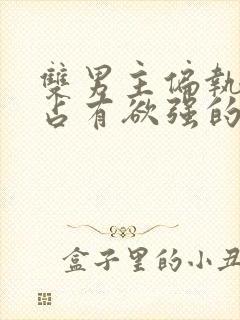 雙男主偏執
占有欲强的
盒子里的小丑